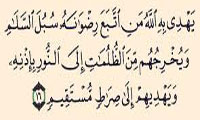 يَهْدِى بِهِ ٱللَّهُ مَنِ ٱتَّبَعَ رِضْوَٰنَهُۥ سُبُلَ ٱلسَّلَٰمِ
وَيُخْرِجُهُم مِّنَ ٱلظُّلُمَٰتِ إِلَى ٱلنُّورِ بِإِذْنِهِۦ
وَيَهْدِيهِمْ إِلَىٰ صِرَٰطٍ مُّسْتَقِيمٍ ١٦